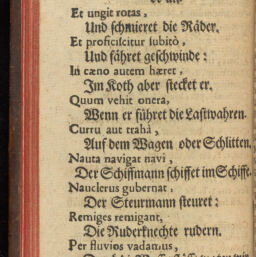 Et ungit rotas,
Und schmieret die Räder.
Et proficiſcitur ſubitò,
Und fähret geschwinde:
In cæno autem hæret,
Im Koth aber stecket er.
Quum vehit onera,
Wenn er führet die Lastwahren.
Curru aut trahâ,
Auf dem Wagen oder Schlitten.
Nauta navigat navi,
Der Schiffmann schiffet im Schiffe.
Nauclerus gubernat,
Der Steurmann steuret:
Remiges remigant,
Die Ruderknechte rudern.
Per fluvios vadamus,